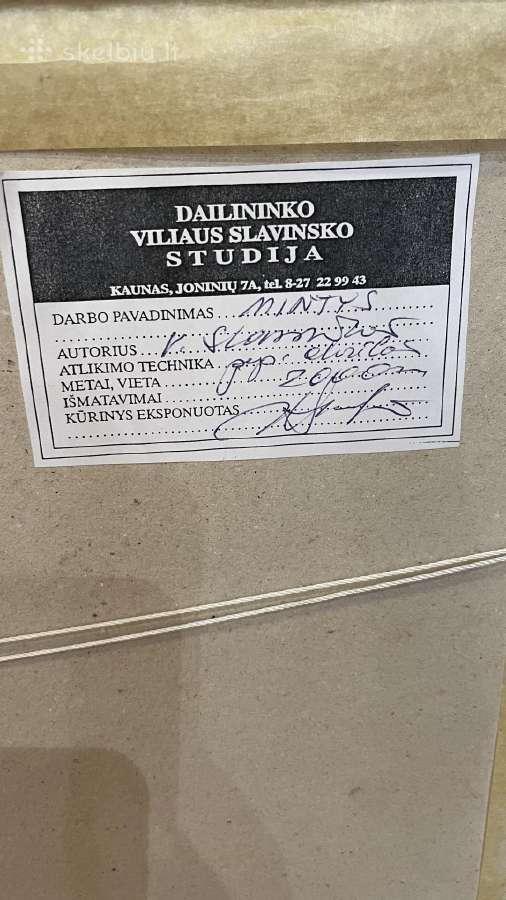 skelbiu.lt
DAILININKO
VILIAUS SLAVINSKO
STUDIJA
KAUNAS, JONINIŲ 7A, tel. 8-27 22 99 43
DARBO PAVADINIMAS MINTYS
AUTORIUS V. Slavinskas
ATLIKIMO TECHNIKA
METAI, VIETA 2000m
IŠMATAVIMAI
KŪRINYS EKSPONUOTAS